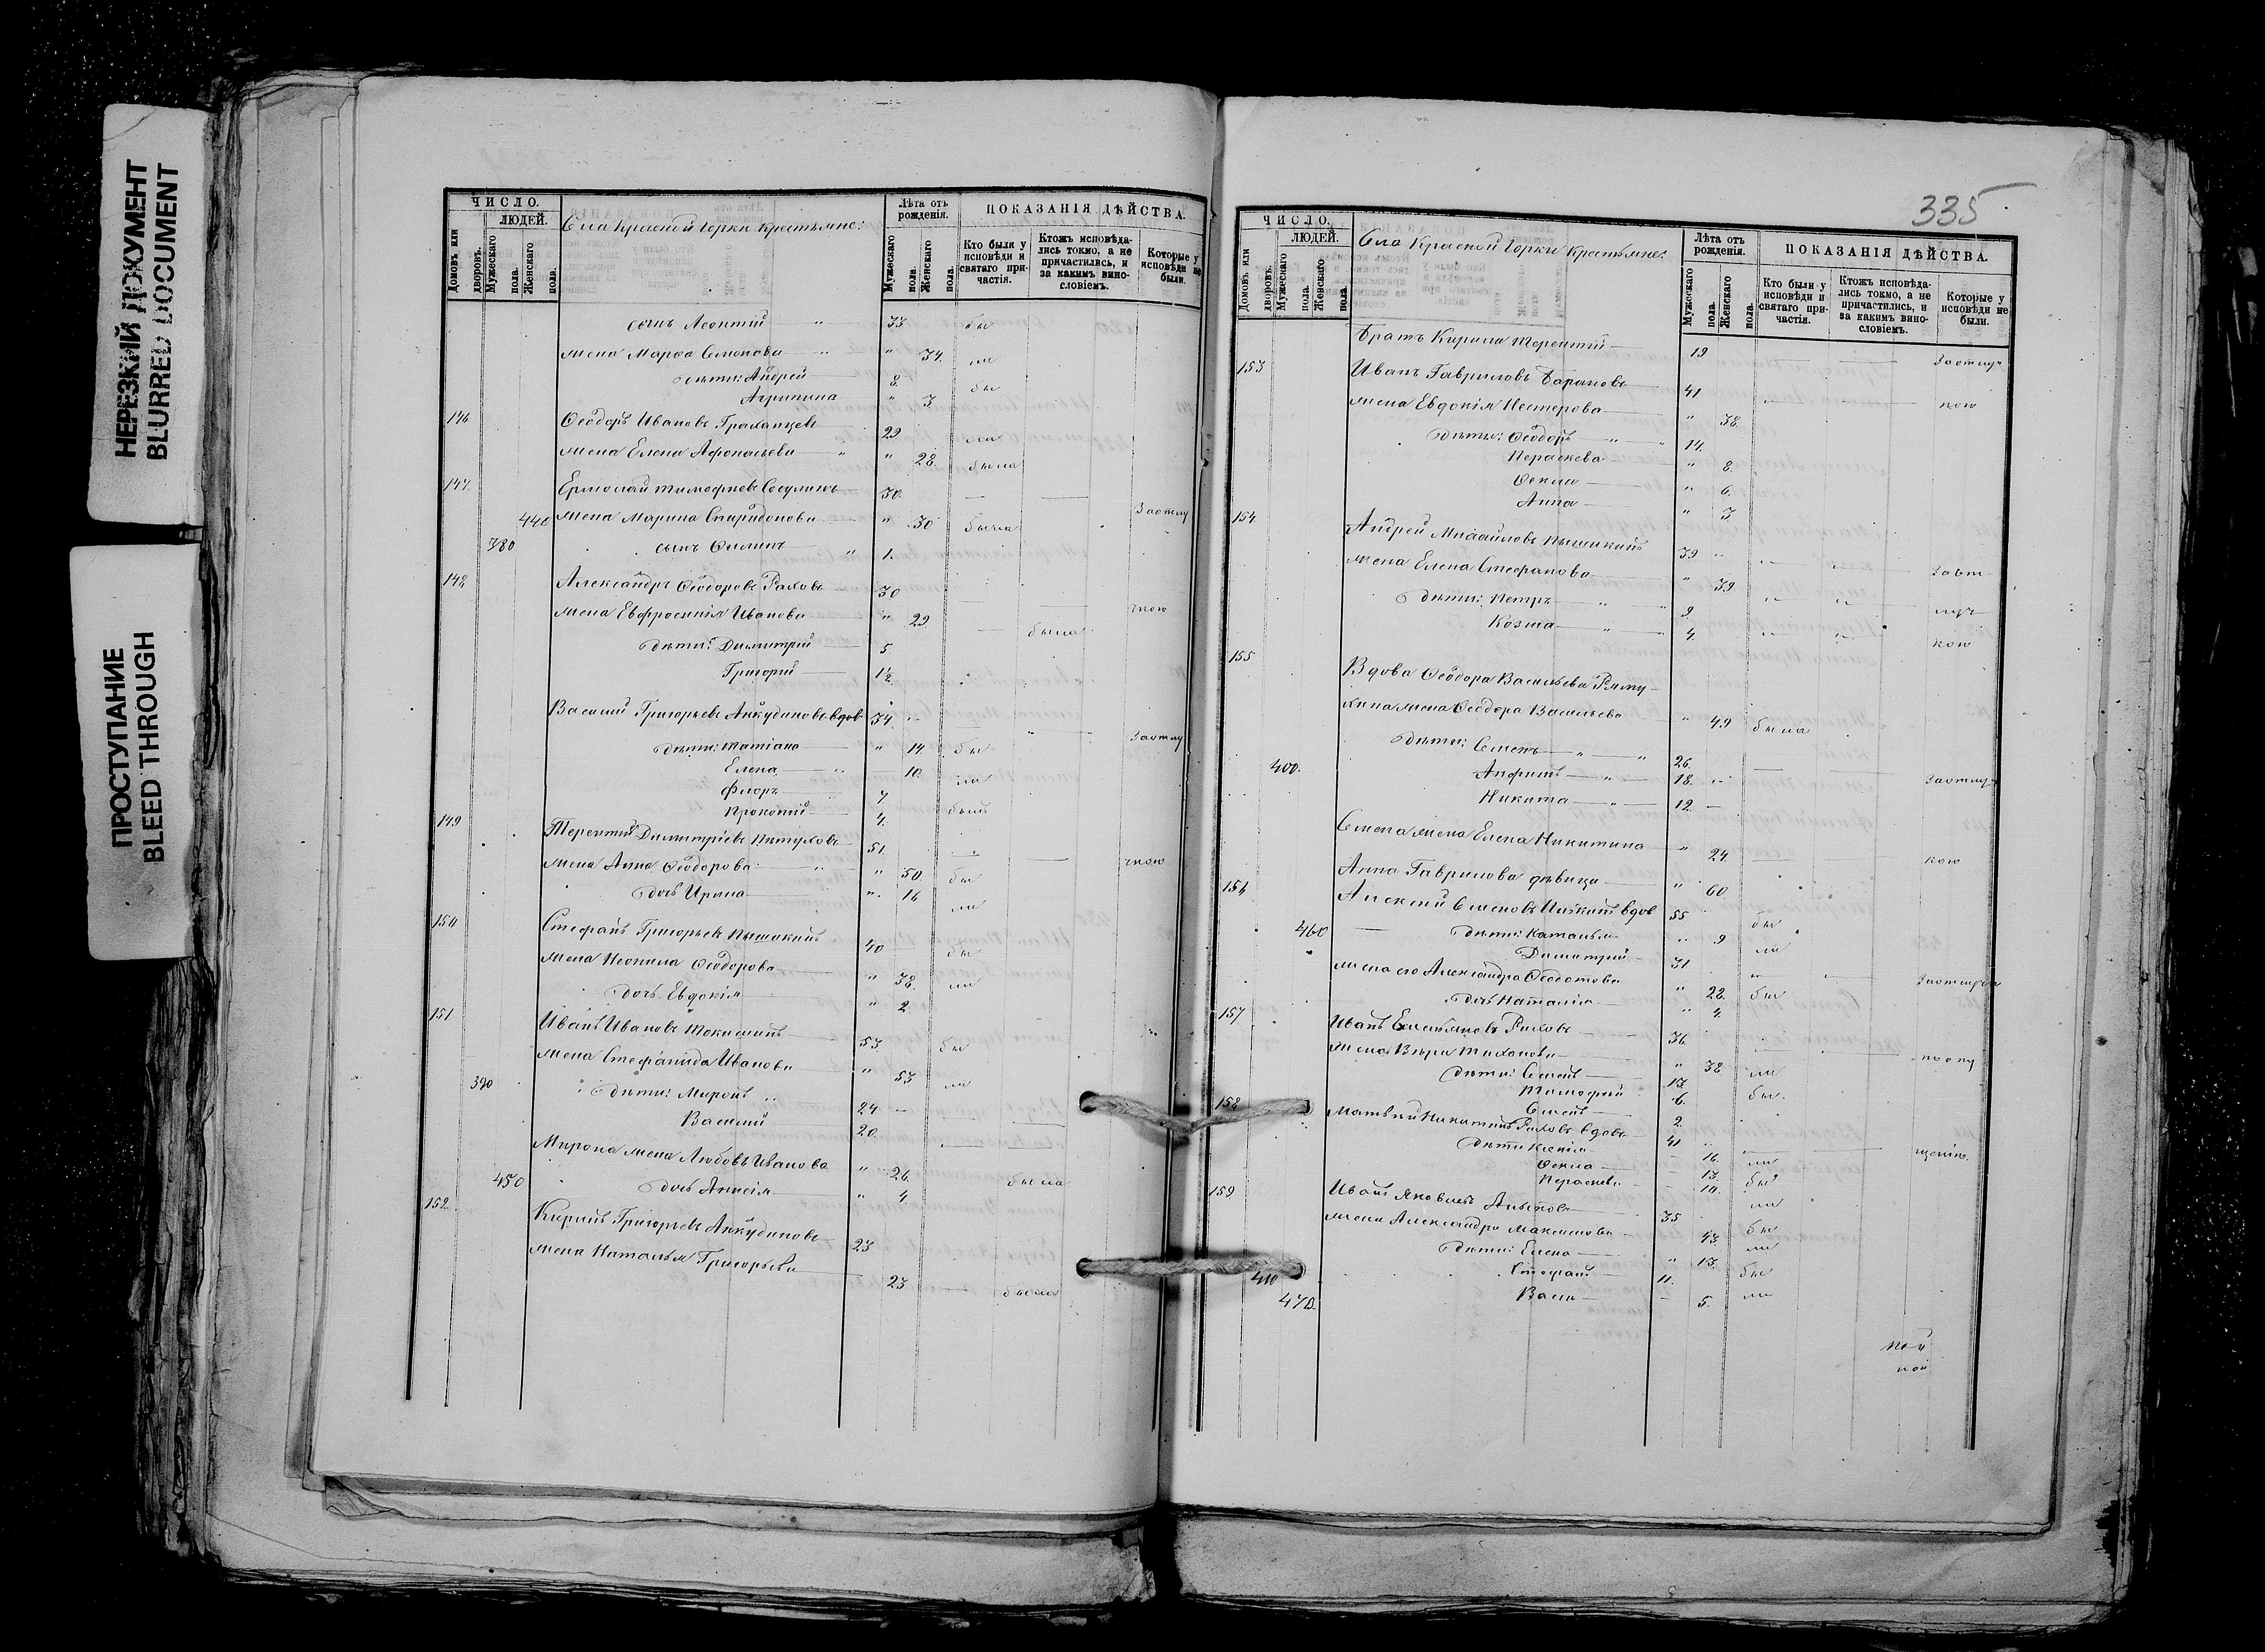 НЕРЕЗКИЙ ДОКУМЕНТ
BLURRED DOCUMENT
ПРОСТУПАНИЕ
BLEED THROUGH
ЧИСЛО.
ЛЮДЕЙ.
Домовъ или дворовъ.
Мужескаго пола.
Женскаго пола.
Села Красной Горки крестьяне:
Лѣта отъ рожденія.
Мужескаго пола.
Женскаго пола.
ПОКАЗАНІЯ ДѢЙСТВА.
Кто были у исповѣди и святаго причастія.
Ктожъ исповѣдались токмо, а не причастились, и за какимъ винословіемъ.
Которые у исповѣди не были.
сынъ Леонтій 33 бы
жена Марѳа Семенова " 34. ли
дѣти: Андрей 8. бы
Агрипина " 3
146 Ѳеодоръ Ивановъ 29 ли
жена Елена Афонасьева " 28. была
147. Ермолай Тимофеевъ 30.
440 жена Марина Спиридонова " 30 была За отлу
380 сынъ Филипъ " 1.
148 Александръ Ѳеодоровъ Рыховъ 30
жена Евфросинія Иванова " 29. была чкою
дѣти: Димитрій 5
Григорій 1½
Василий Григорьевъ Анкудиновъ вдов 34.
дѣти: Татіана " 14. бы За отлу
Елена 10. ли
Флоръ 7
Прокопій 4. были
149 Терентий Димитріевъ Пѣтуховъ 51.
жена Анна Ѳеодорова " 50. бы чкою
дочь Ирина " 16 ли
150 Стефанъ Григорьевъ 40 бы
жена Неонила Ѳеодорова " 38. ли
дочь Евдокія " 2.
151 Иванъ Ивановъ 53. бы
жена Стефанида Иванова " 53 ли
390 дѣти: Миронъ 24
Василий 20.
Мирона жена Любовь Иванова " 26. была
450 дочь " 4.
152. Кирилъ Григорьевъ Анкудиновъ 23
жена Наталья Григорьева 23 была
335
ЧИСЛО.
ЛЮДЕЙ.
Домовъ или дворовъ.
Мужескаго пола.
Женскаго пола.
Села Красной Горки Крестьяне:
Лѣта отъ рожденія.
Мужескаго пола.
Женскаго пола.
ПОКАЗАНІЯ ДѢЙСТВА.
Кто были у исповѣди и святаго причастія.
Ктожъ исповѣдались токмо, а не причастились, и за какимъ винословіемъ.
Которые у исповѣди не были.
Братъ Кирила Терентий 19 За отлуч
153 Иванъ Гавриловъ Барановъ 41 кою
жена Евдокія Нестерова " 38.
дѣти: Ѳеодоръ 14.
Параскева " 8.
Ѳекла " 6.
Анна " 3
154 Андрей Михайловъ 39
жена Елена Стефанова " 39 За от
дѣти: Петръ 9. луч
Козма 4. кою
155 Вдова Ѳеодора Васильева
жена Ѳеодора Васильева " 49 была
дѣти: Семенъ 26.
400. 18. За отлуч
Никита 12.
Семена жена Елена Никитина " 24. кою
Анна Гаврилова дѣвица " 60.
156 Алексѣй Семеновъ вдов 55 бы
460 дѣти: Наталья " 9 ли
Димитрий 31
жена его Александра Ѳедотова " 28. бы За отлуч
дочь Наталія " 4.
157 Иванъ Емельяновъ Рыховъ 36.
жена Вѣра Тихонова " 38 ли
дѣти: Семенъ 13. бы
Тимофей 6.
Семенъ 2.
158 Матвѣй Никитинъ Рыховъ вдовъ 41
дѣти Ксенія 16. ли
Ѳекла 13. бы
Параскева 10. ли
159 Иванъ Яковлевъ 35 бы
жена Александра Максимова 43. ли
дѣти: Елена " 13. бы
410 Стефанъ 11. ли
470. 5.